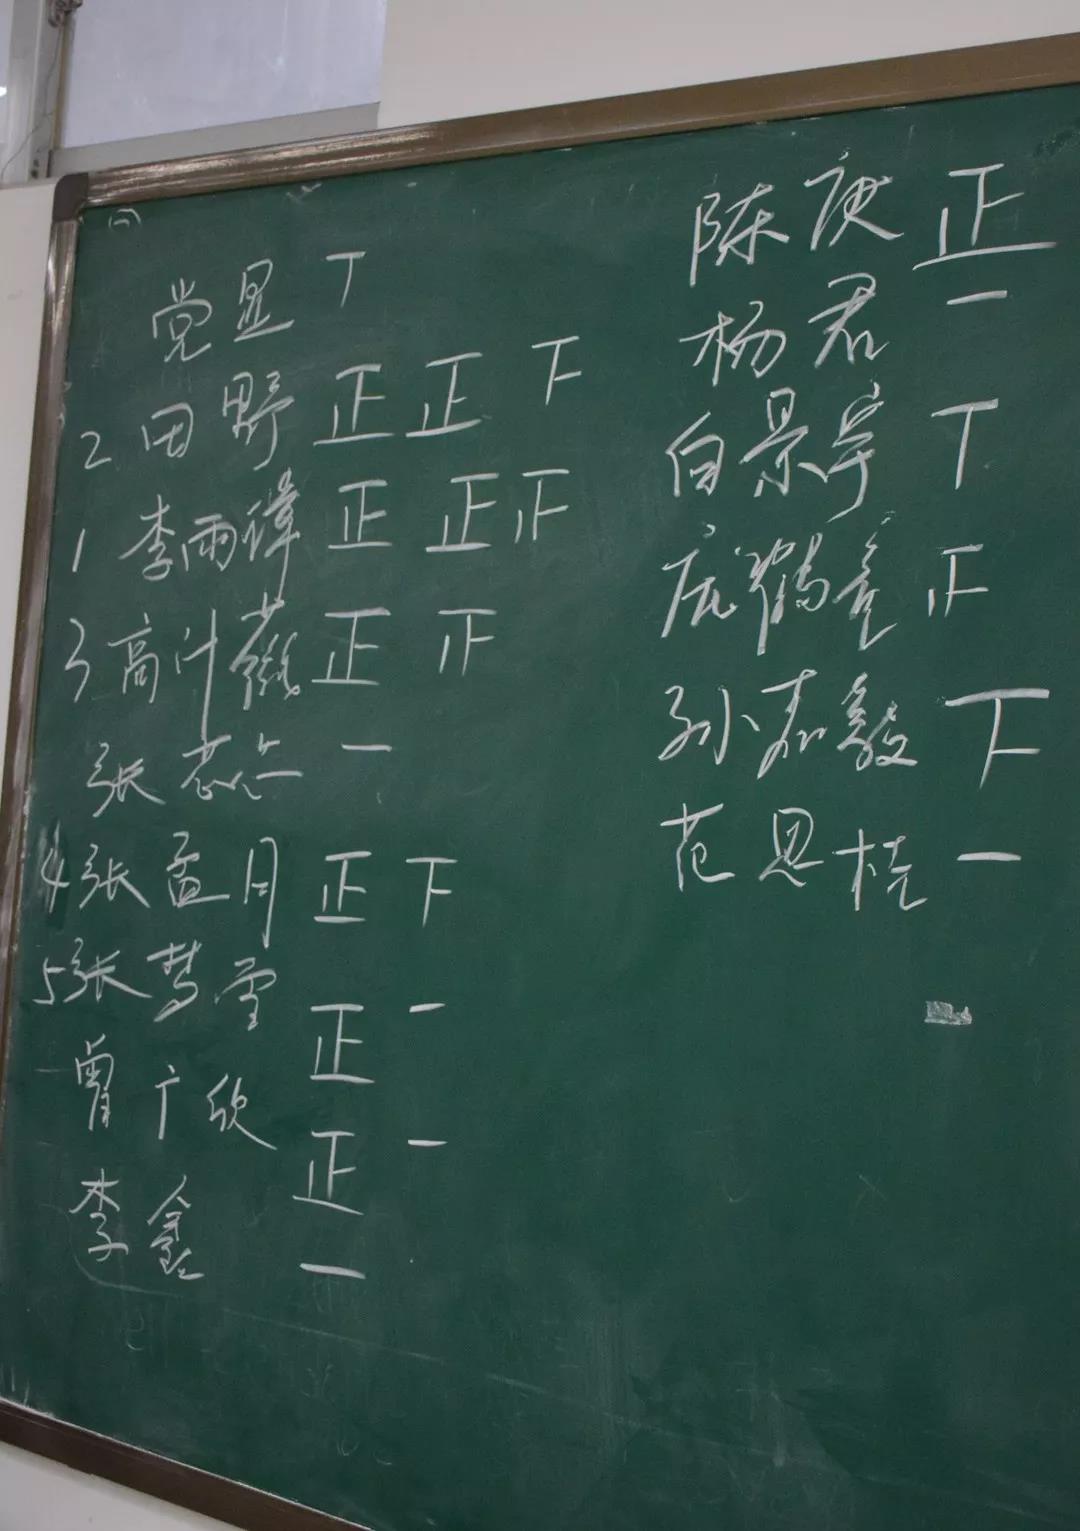 党显 丅
2 田野 正 正 下
1 李雨谆 正 正 正
3 高汁薇 正 正
张芯 一
4 张孟月 正 下
5 张梦雪 正 一
曾广欣 正 一
李鑫 一
陈庚 正
杨君 一
白景宇 丅
鹤 正
孙嘉毅 下
范思桂 一